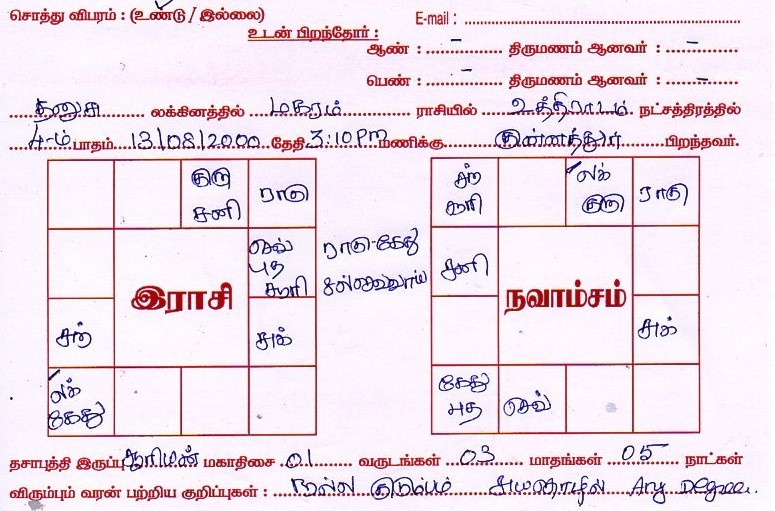 சொத்து விபரம் : (உண்டு / இல்லை) E-mail :
உடன் பிறந்தோர் :
ஆண் : – திருமணம் ஆனவர் : –
பெண் : – திருமணம் ஆனவர் : –
தனுசு லக்கினத்தில் மகரம் ராசியில் உத்திராடம் நட்சத்திரத்தில்
4-ம் பாதம் 13/08/2000 தேதி 3:10 PM மணிக்கு குன்னத்தூர் பிறந்தவர்.
குரு சனி ராகு
செவ் புத சூரி
இராசி
சந் சுக்
லக் கேது
ராகு-கேது
செவ்வாய்
சந் சூரி லக் குரு ராகு
சனி
நவாம்சம்
சுக்
கேது புத செவ்
தசாபுத்தி இருப்பு சூரியன் மகாதிசை 01 வருடங்கள் 03 மாதங்கள் 05 நாட்கள்
விரும்பும் வரன் பற்றிய குறிப்புகள் : நல்ல குடும்பம் சுயதொழில் Any Degree.